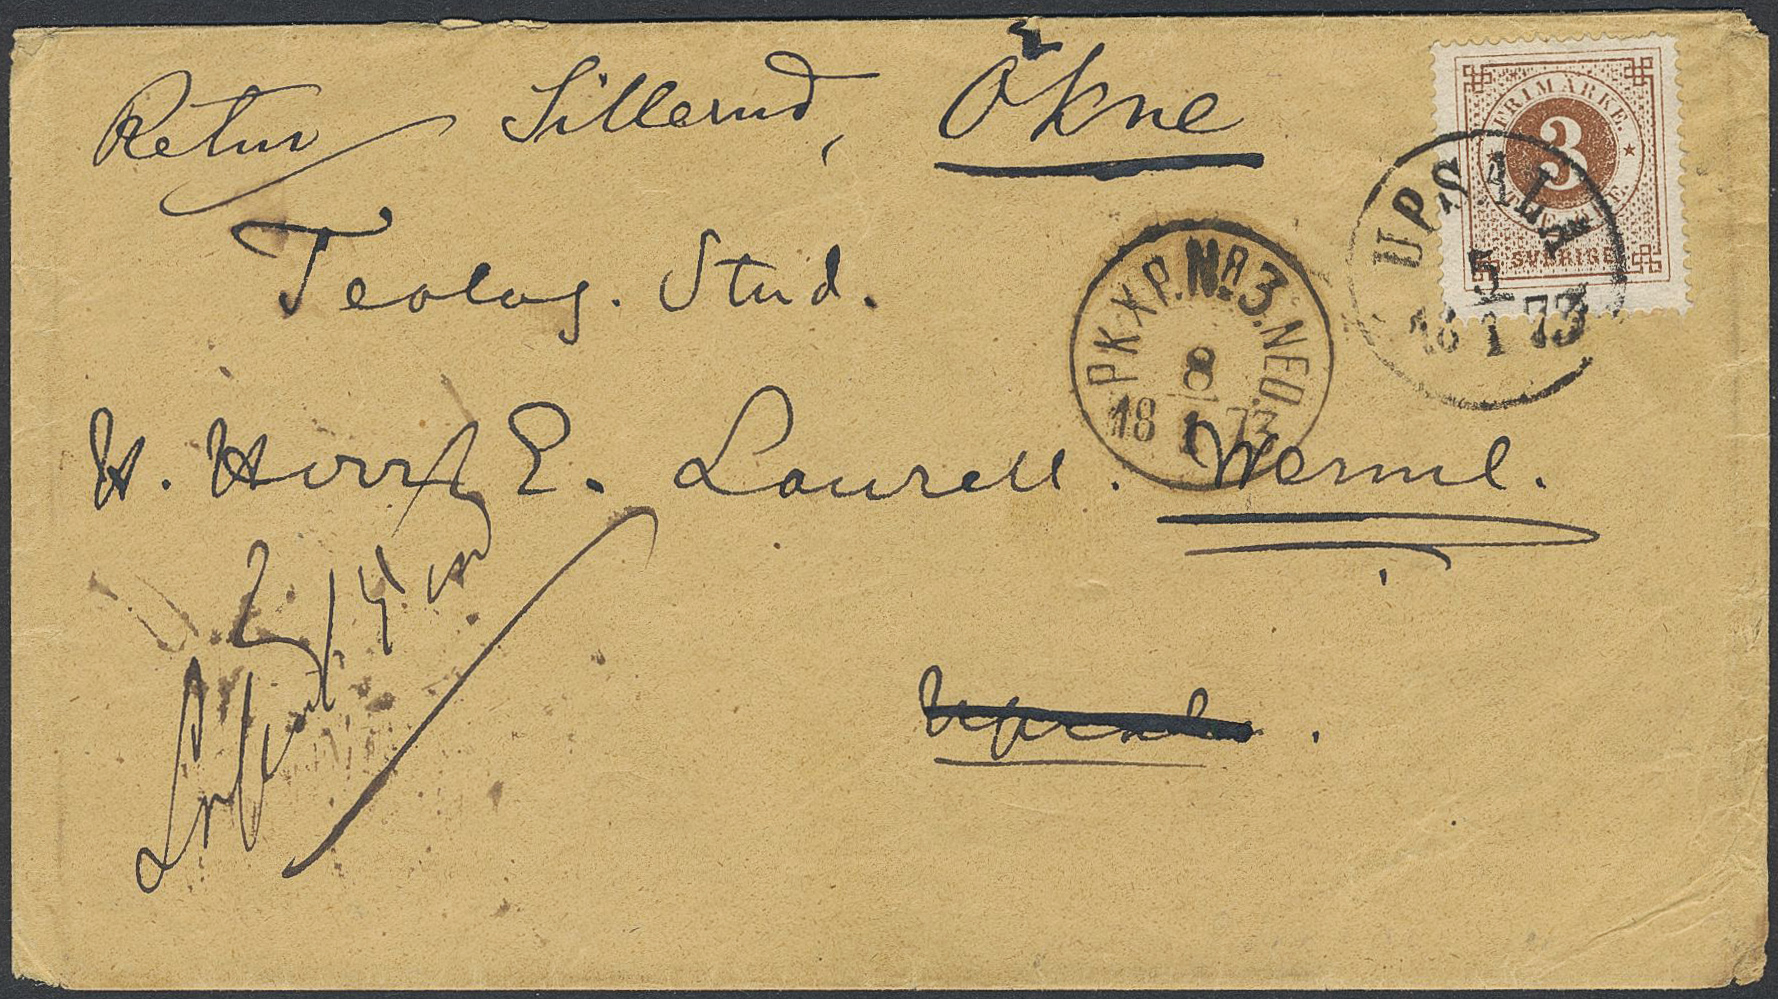 Retur Sillerud, Ökne
Teolog. Stud.
H. Herr E. Laurell. Werml.
Upsala.
FRIMÄRKE.
3
TRE ÖRE.
SVERIGE
UPSALA
5
18 1 73
PKXP.NR3.NED.
8
18 1 73